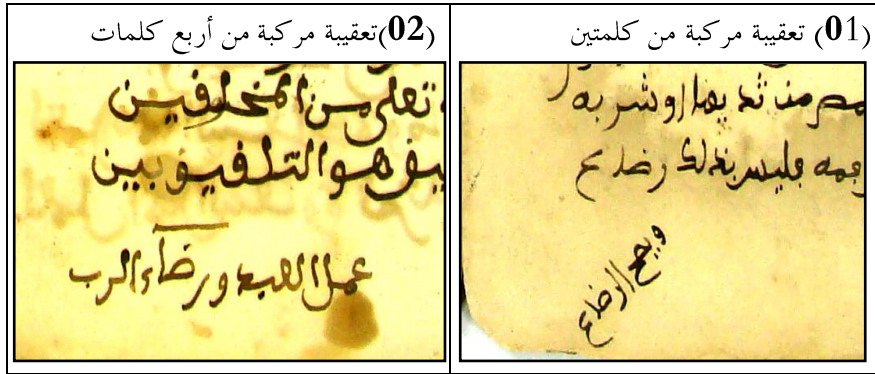 (01) تعقيبة مركبة من كلمتين
مص من ثديها او شربه
فليس بذلك رضاع
الرضاع
(02) تعقيبة مركبة من أربع كلمات
تعلى من
هو التلفيق بين
عمل العبد ورضاء الرب